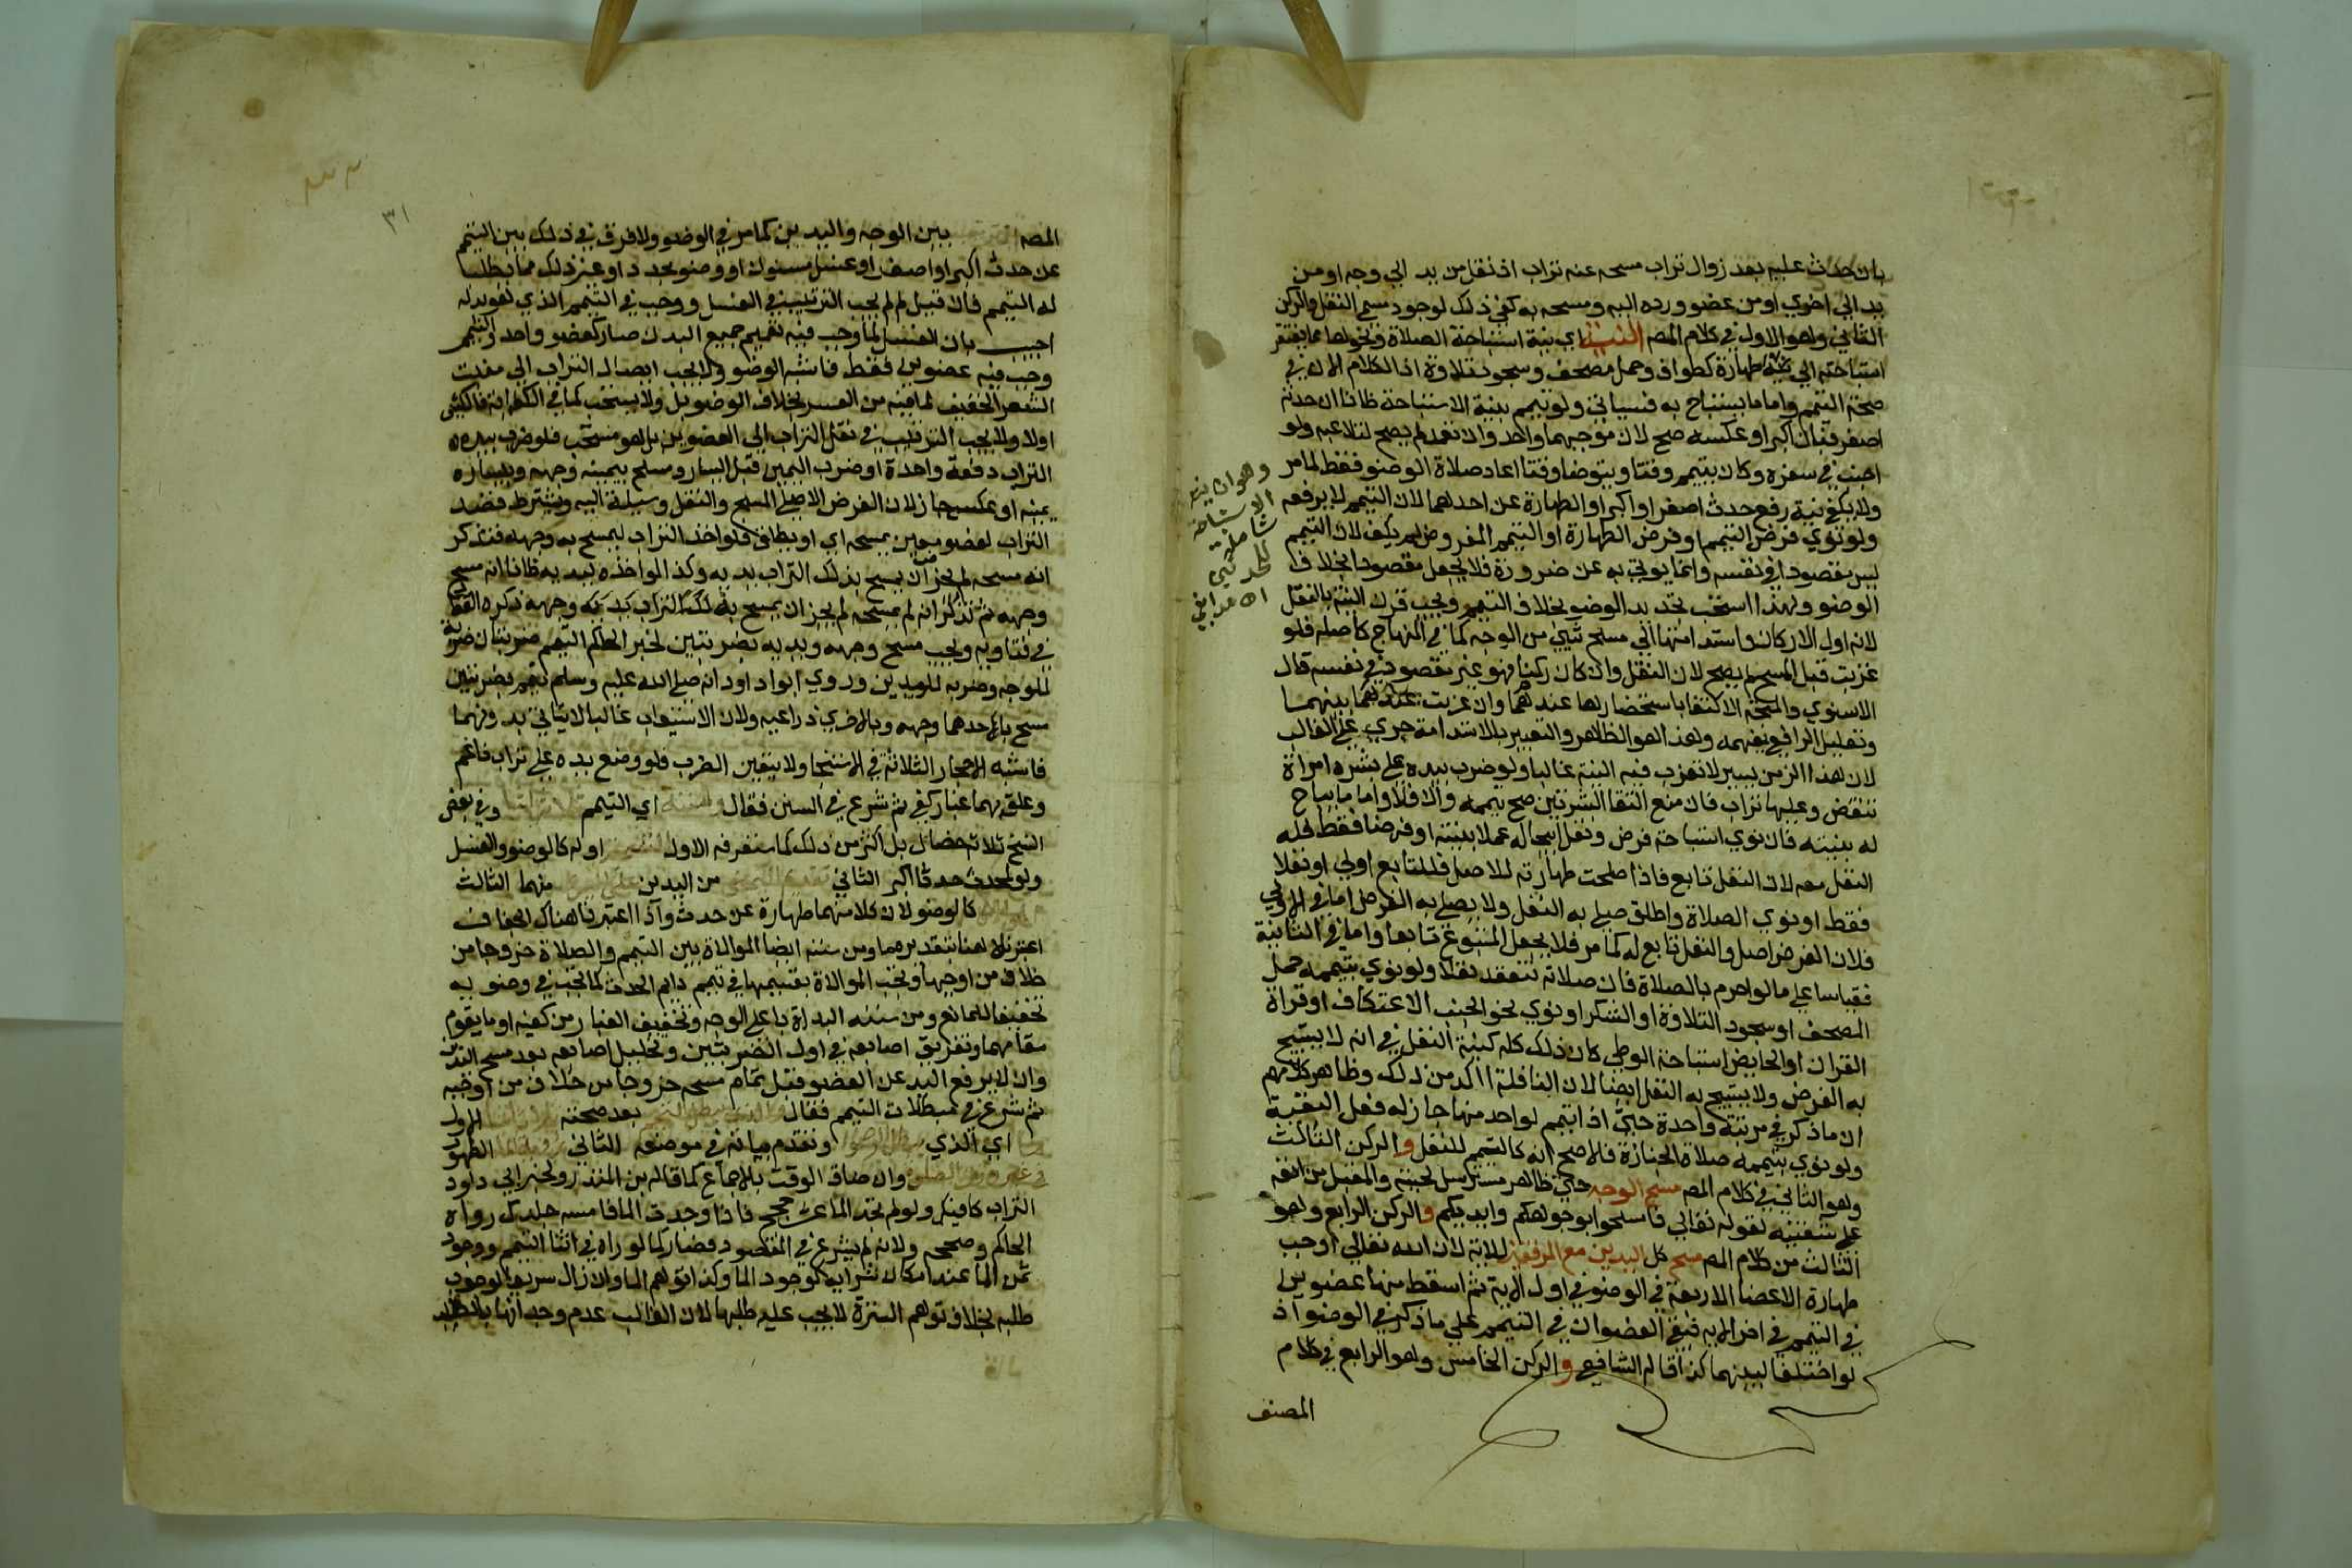 بان حدث عليه بعد زوال تراب مسحه عنه تراب اذ نقل من يد الي وجه او من
يد الي اخري او من عضو ورده اليه ومسحه به كفي ذلك لوجود مسمي النقل والركن
الثاني وهو الاول في كلام المصـ النية اي نية استباحة الصلاة ونحوها مما يفتقر
استباحته الي طهارة كطواف وحمل مصحف وسجود تلاوة اذ الكلام الان في
صحة التيمم واما ما يستباح به فسياتي ولو تيمم بنية الاستباحة ظانا ان حدثه
اصغر فبان اكبر او عكسه صح لان موجبهما واحد وان تعمد لم يصح لتلاعبه ولو
اجنب في سفره وكان يتيمم وقتا ويتوضا وقتا اعاد صلاة الوضو فقط لما مر
ولا يكفي نية رفع حدث اصغر او اكبر او الطهارة عن احدهما لان التيمم لا يرفعه
ولو نوي فرض التيمم او فرض الطهارة او التيمم المفروض لم يكف لان التيمم
ليس مقصودا في نفسه وانما يوتي به عن ضرورة فلا يجعل مقصودا بخلاف
الوضو ولهذا استحب تجديد الوضو بخلاف التيمم ويجب قرن النية بالنقل
لانه اول الاركان واستدامتها الي مسح شي من الوجه كما في المنهاج كاصله فلو
عزبت قبل المسح لم يصح لان النقل وان كان ركنا فهو غير مقصود في نفسه قال
الاسنوي والمتجه الاكتفا باستحضارها عندهما وان عزبت بينهما
وتعليل الرافعي يفهمه وهذا هو الظاهر والتعبير بالاستدامة جري علي الغالب
لان هذا الزمن يسير لا تعزب فيه النية غالبا ولو ضرب بيده علي بشرة امراة
تنقض وعليها تراب فان منع التقا البشرتين صح تيممه والا فلا واما ما يباح
له بنيته فان نوي استباحة فرض ونفل ابيحا له عملا بنيته او فرضا فقط فله
النفل معه لان النفل تابع فاذا صلحت طهارته للاصل فللتابع اولي او نفلا
فقط او نوي الصلاة واطلق صلي به النفل ولا يصلي به الفرض اما في الاولي
فلان الفرض اصل والنفل تابع له كما مر فلا يجعل المتبوع تابعا واما في الثانية
فقياسا علي ما لو احرم بالصلاة فان صلاته تنعقد نفلا ولو نوي بتيممه حمل
المصحف او سجود التلاوة او الشكر او نوي نحو الجنب الاعتكاف او قراة
القران او الحايض استباحة الوطي كان ذلك كله كنية النفل في انه لا يستبيح
به الفرض ولا يستبيح به النفل ايضا لان النافلة اكد من ذلك وظاهر كلامهم
ان ما ذكر في مرتبة واحدة حتي اذا تيمم لواحد منها جاز له فعل البقية
ولو نوي بتيممه صلاة الجنازة فالاصح انه كالتيمم للنفل و الركن الثالث
وهو الثاني في كلام المصـ مسح الوجه حتي ظاهر مسترسل لحيته والمقبل من انفه
علي شفتيه لقوله تعالي فامسحوا بوجوهكم وايديكم و الركن الرابع وهو
الثالث من كلام المصـ مسح كل اليدين مع المرفقين للاية لان الله تعالي اوجب
طهارة الاعضا الاربعة في الوضو في اول الاية ثم اسقط منها عضوين
في التيمم في اخر الاية فبقي العضوان في التيمم علي ما ذكر في الوضو اذ
لو اختلفا لبينهما كذا قاله الشافعي و الركن الخامس وهو الرابع في كلام
المصنف
وهو ان ينو
الاستباحة
٣١
المصـ الترتيب بين الوجه واليدين كما مر في الوضو ولا فرق في ذلك بين التيمم
عن حدث اكبر او اصغر او غسل مسنون او وضو مجدد او غير ذلك مما يطلب
له التيمم فان قيل لم لم يجب الترتيب في الغسل ووجب في التيمم الذي هو بدله
اجيب بان الغسل لما وجب فيه تعميم جميع البدن صار كعضو واحد والتيمم
وجب فيه عضوين فقط فاشبه الوضو ولا يجب ايصال التراب الي منبت
الشعر الخفيف لما فيه من العسر بخلاف الوضو بل ولا يستحب كما في الكفاية فالكثيف
اولا ولا يجب الترتيب في نقل التراب الي العضوين بل هو مستحب فلو ضرب بيديه
التراب دفعة واحدة او ضرب اليمين قبل اليسار ومسح بيمينه وجهه وبيساره
يمينه او عكس جاز لان الفرض الاصلي المسح والنقل وسيلة اليه ويشترط قصد
التراب لعضو معين يمسحه اي او يطلق فلو اخذ التراب ليمسح به وجهه فتذكر
انه مسحه لم يجز ان يمسح بذلك التراب يديه وكذا لو اخذه ليديه ظانا انه مسح
وجهه ثم تذكر انه لم يمسحه لم يجز ان يمسح به وجهه ذكره القفال
في فتاويه ويجب مسح وجهه ويديه بضربتين لخبر الحاكم التيمم ضربتان ضربة
للوجه وضربة لليدين وروي ابو داود انه صلي الله عليه وسلم تيمم بضربتين
مسح باحدهما وجهه وبالاخري ذراعيه ولان الاستيعاب غالبا لا يتاتي بدونهما
فاشبه الاحجار الثلاثة في الاستنجا ولا يتعين الضرب فلو وضع يده علي تراب ناعم
وعلق بهما غبار كفي ثم شرع في السنن فقال وسننه اي التيمم وفي بعض
النسخ ثلاث خصال بل اكثر من ذلك كما ستعرفه الاول التسمية اوله كالوضو والغسل
ولو لمحدث حدثا اكبر الثاني تقديم اليمني من اليدين علي اليسري منهما الثالث
كالوضو لان كلا منهما طهارة عن حدث واذا اعتبرنا هناك الجفاف
اعتبرناه هنا بتقديره ما ومن سننه ايضا الموالاة بين التيمم والصلاة خروجا من
خلاف من اوجبها وتجب الموالاة بقسميها في تيمم دايم الحدث كما تجب في وضويه
تخفيفا للمانع ومن سننه البداة باعلي الوجه وتخفيف الغبار من كفيه او ما يقوم
مقامهما وتفريق اصابعه في اول الضربتين وتخليل اصابعه بعد مسح اليدين
وان لا يرفع اليد عن العضو قبل تمام مسحه خروجا من خلاف من اوجبه
ثم شرع في مبطلات التيمم فقال والذي يبطل التيمم بعد صحته الاول
اي الذي يبطل الوضوء وتقدم بيانه في موضعه الثاني الطهور
في غير وقت الصلاة وان ضاق الوقت بالاجماع كما قاله بن المنذر ولخبر ابي داود
التراب كافيك ولو لم تجد الما عشر حجج فاذا وجدت الما فامسه جلدك رواه
الحاكم وصححه ولانه لم يشرع في المقصود فصار كما لو راه في اثنا التيمم ووجود
ثمن الما عند امكان شرايه كوجود الما وكذا توهم الما وان زال سريعا لوجوب
طلبه بخلاف توهم السترة لا يجب عليه طلبها لان الغالب عدم وجدانها بالطلب